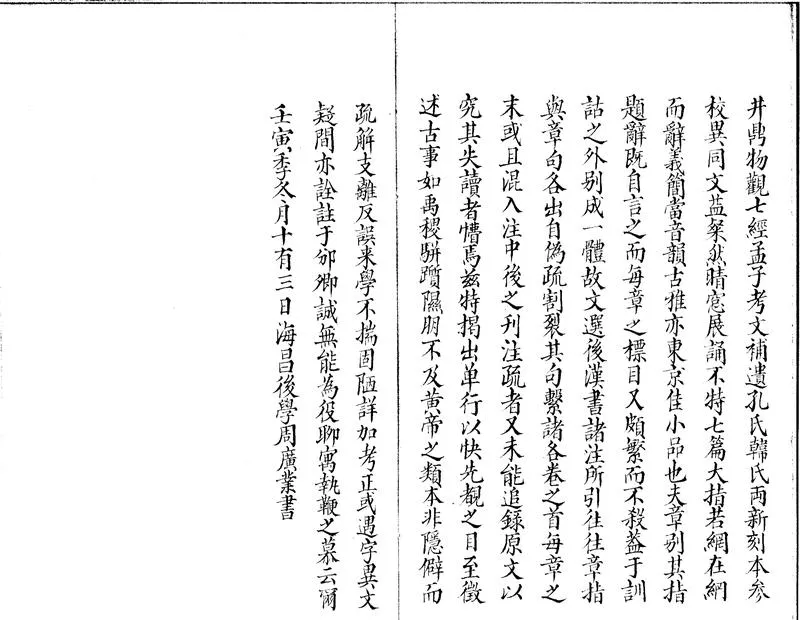 井鼎物觀七經孟子考文補遺孔氏韓氏兩新刻本參
校異同文益粲然晴窓展誦不特七篇大指若網在綱
而辭義簡當音韻古雅亦東京佳小品也夫章别其指
題辭既自言之而每章之標目又頗繁而不殺葢于訓
詁之外别成一體故文選後漢書諸注所引往往章指
與章句各出自僞疏割裂其句繫諸各卷之首每章之
末或且混入注中後之刊注疏者又未能追錄原文以
究其失讀者懵焉兹特揭出单行以快先覩之目至徵
述古事如禹稷駢躓隰朋不及黄帝之類本非隱僻而
疏解支離反誤来學不揣固陋詳加考正或遇字異文
疑間亦詮註于邠卿誠無能為役聊寓執鞭之慕云爾
壬寅季冬月十有三日海昌後學周廣業書